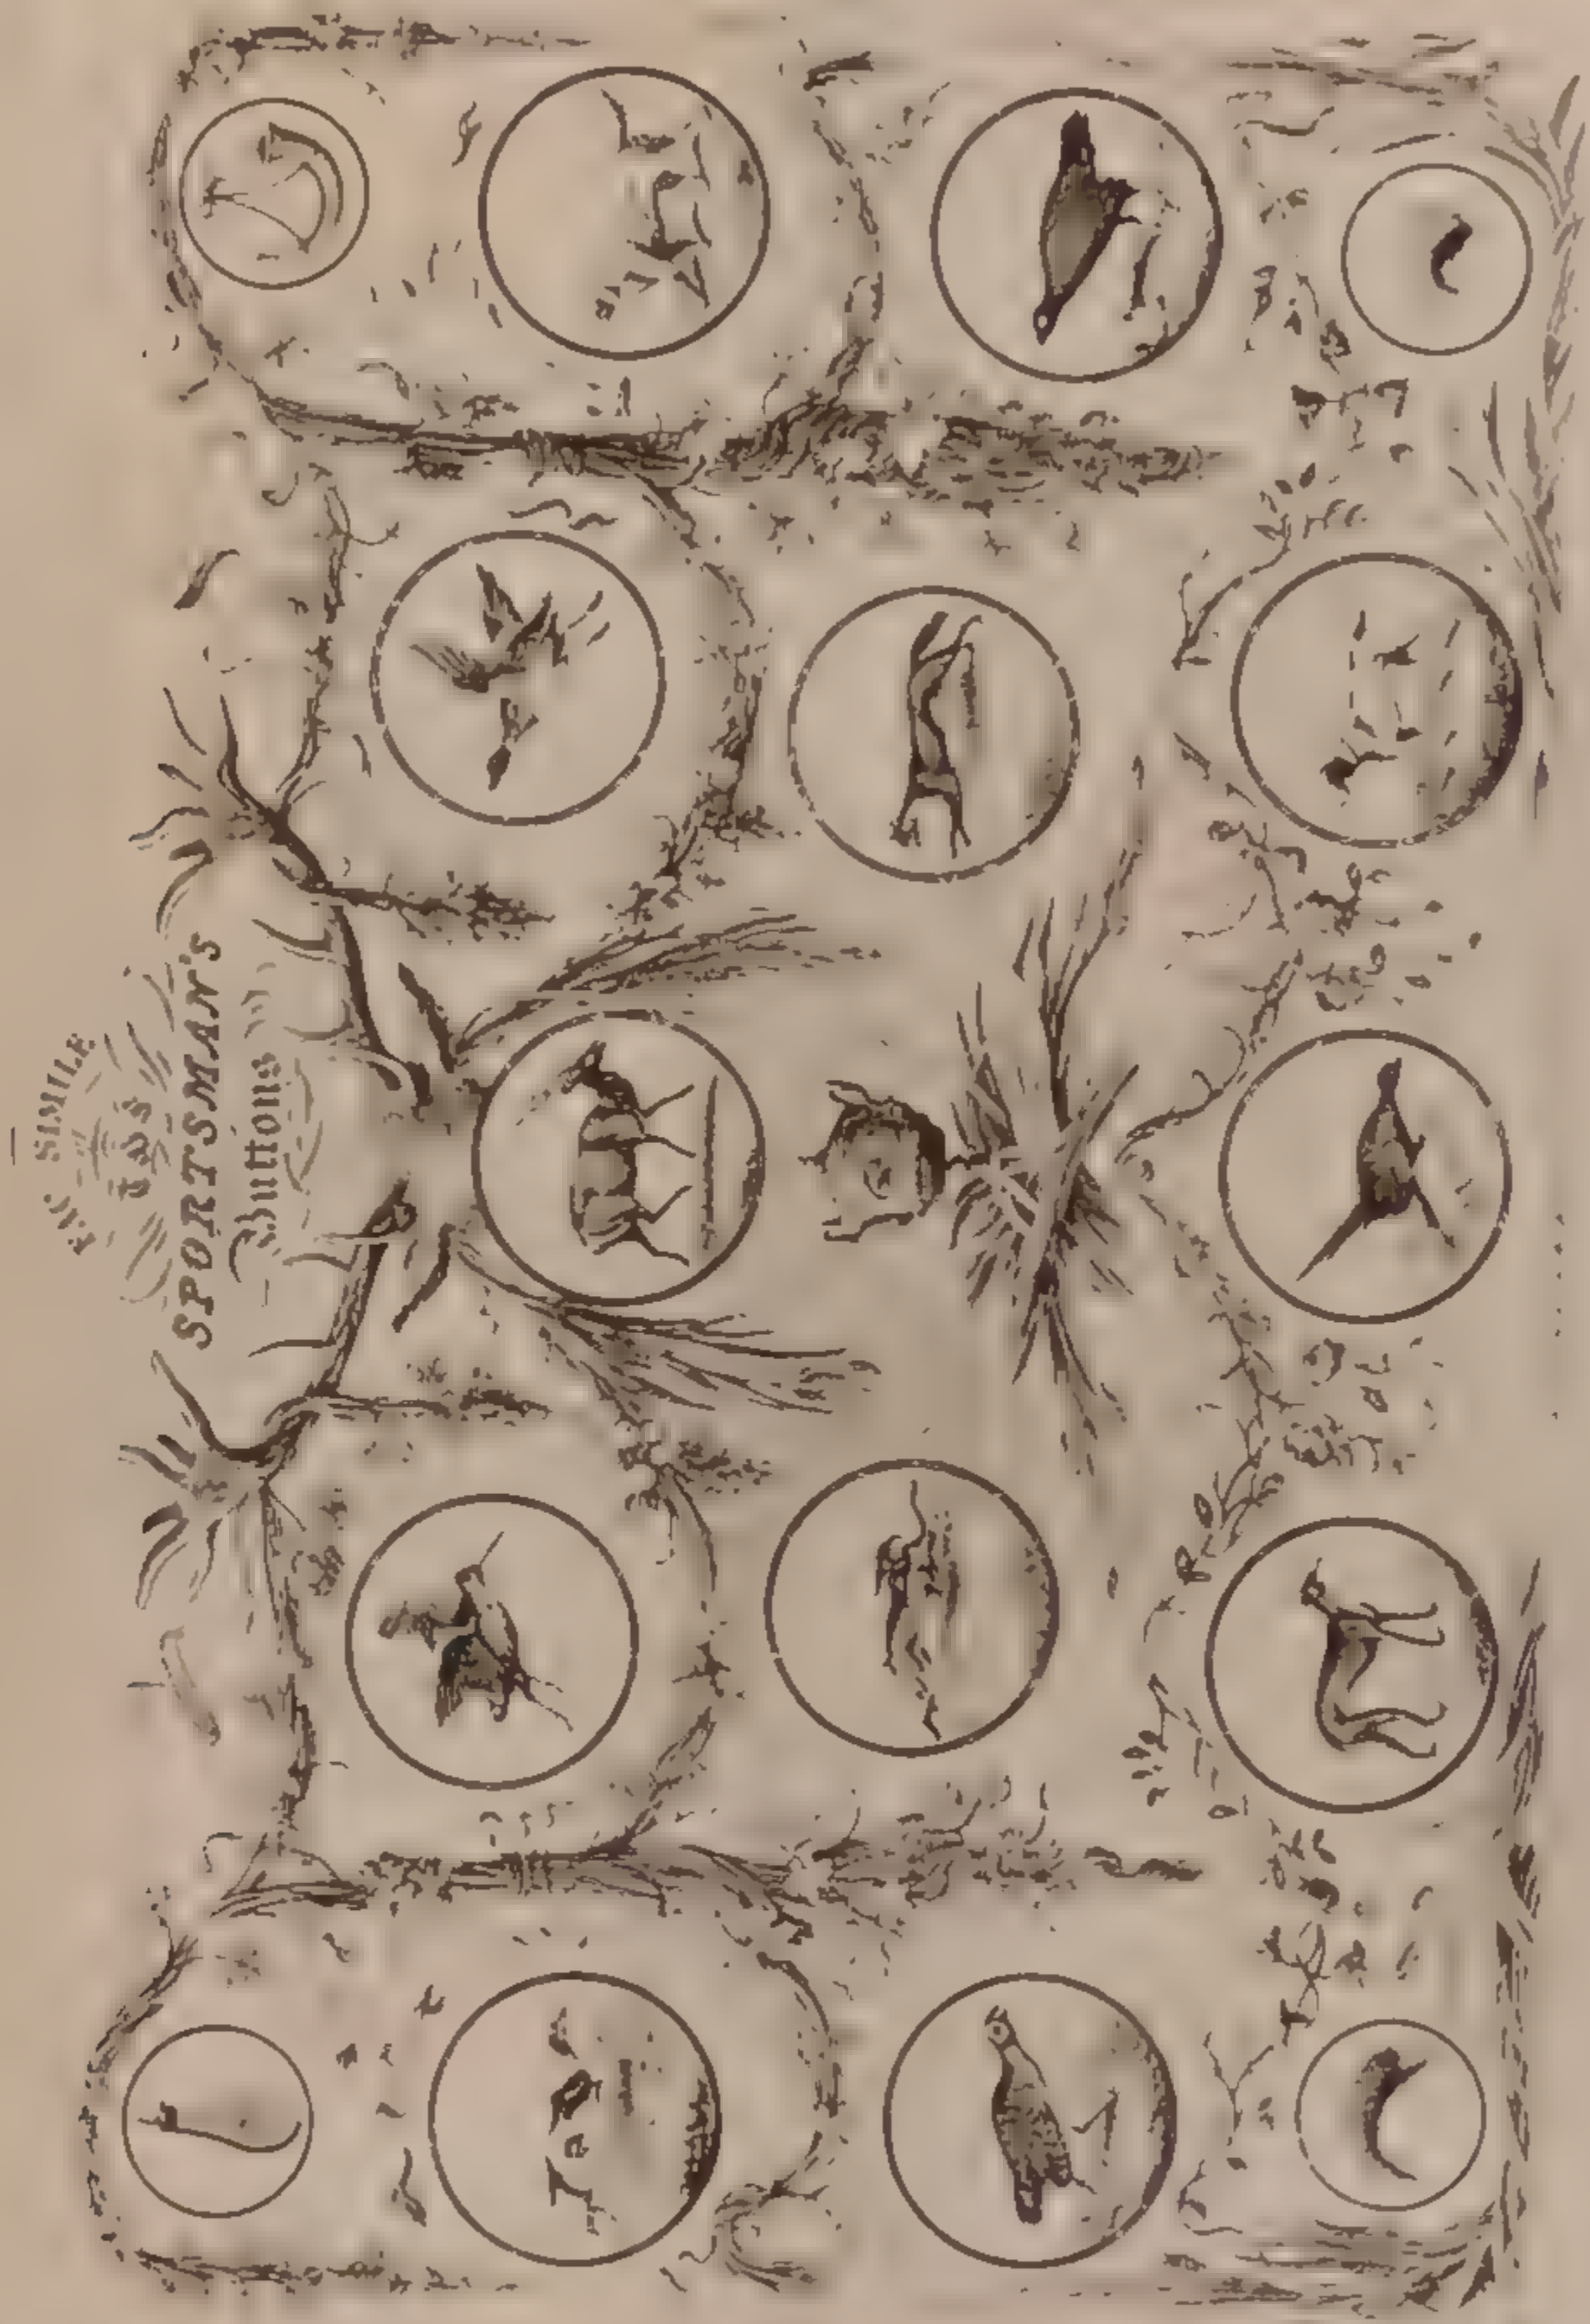 FAC SIMILE
SPORTSMAN'S
Buttons